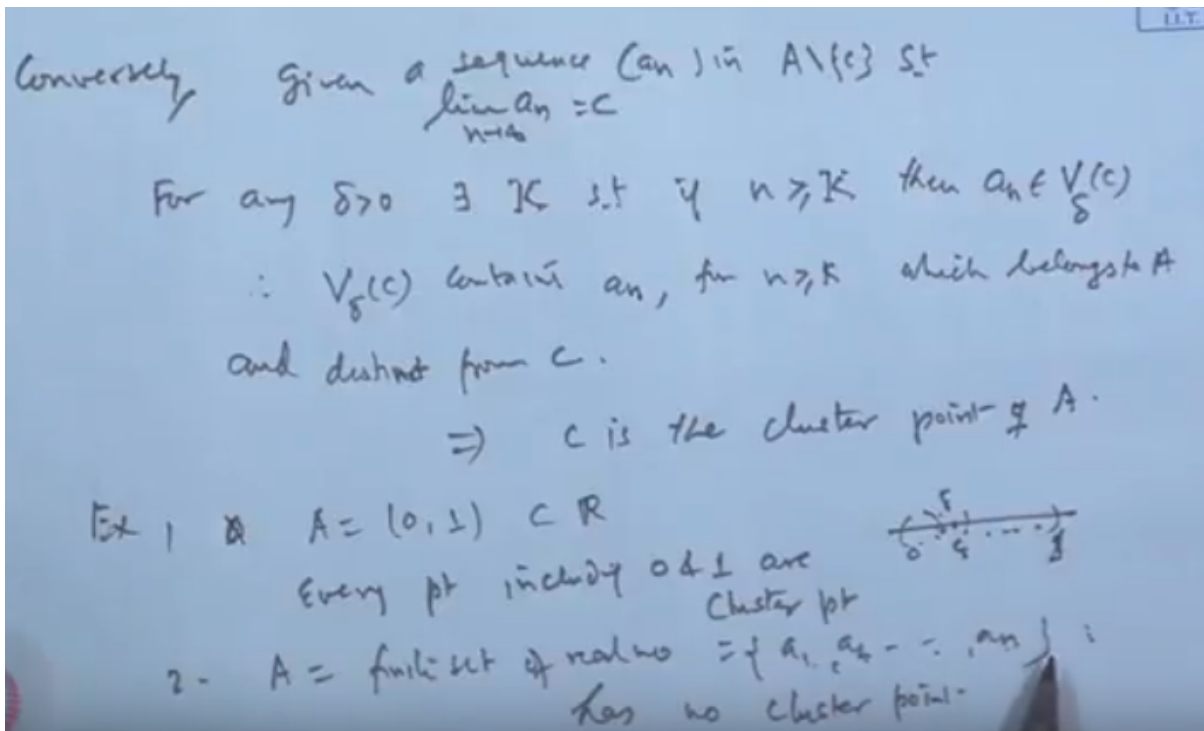 I.I.T.
Conversely, Given a sequence (an) in A\{c} s.t
lim an = c
n→∞
For any δ>0 ∃ K s.t if n≥K then an ∈ Vδ(c)
∴ Vδ(c) contains an, for n≥K which belongs to A
and distinct from c.
⇒ c is the cluster point of A.
Ex 1 A = (0,1) ⊂ R
Every pt including 0 & 1 are
Cluster pt
0 1
2- A = finite set of real no = {a1, a2 - - ., an} :
has no cluster point-